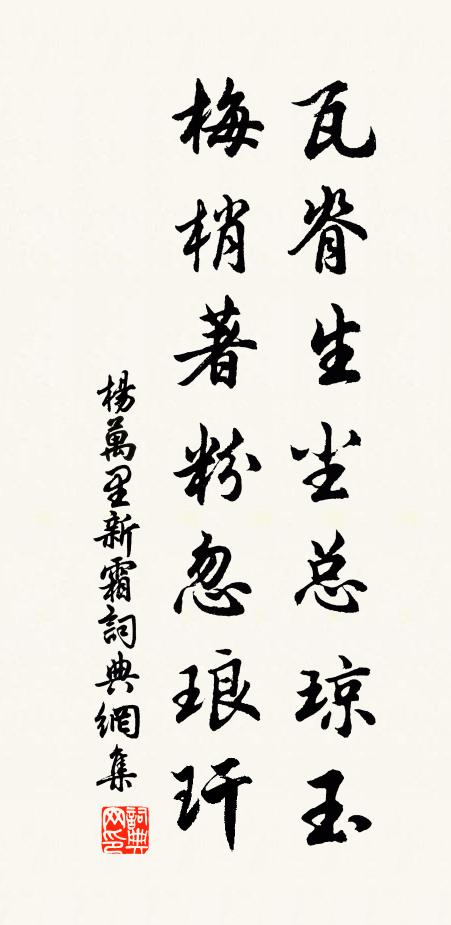 瓦脊生尘总琼玉
梅梢著粉忽琅玕
楊萬里新霜詞典網集
詞典网印